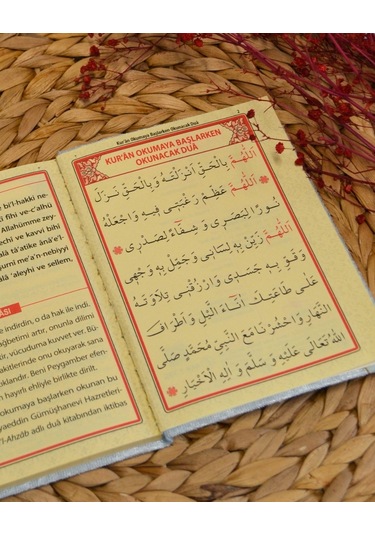 b'i-hakki ne-
î fihi ve-c'alhü
Allahümme zey-
echi ve kavvi bihî
alâ tâ'atike ânâ'e'l-
urnî me'a'n-nebiyyi
alâ 'aleyhi ve sellem,
ASI
e indirdin, o da hak ile indi.
ağbetimi arttır, onunla dilimi
tir, vücuduma kuvvet ver. Bü-
akitlerinde onu okuyarak sana
klandır. Beni Peygamber efen-
n hayırlı ehliyle birlikte dirilt.
okumaya başlarken okunan bu
yaeddin Gümüşhanevî Hazretleri-
'l-Ahzâb adlı duâ kitabından iktibas
Kur'ân Okumaya Başlarken Okunacak Duâ
KUR'ÂN OKUMAYA BAŞLARKEN
OKUNACAK DUÂ
اَللّٰهُمَّ بِالْحَقِّ اَنْزَلْتَهُ وَبِالْحَقِّ نَزَلَ
اَللّٰهُمَّ عَظِّمْ رَغْبَتِى فِيهِ وَاجْعَلْهُ
نُورًا لِبَصَرِى وَشِفَاءً لِصَدْرِى
اَللّٰهُمَّ زَيِّنْ بِهِ لِسَانِى وَجَمِّلْ بِهِ وَجْهِى
وَقَوِّ بِهِ جَسَدِى وَارْزُقْنِى تِلَاوَتَهُ
عَلَى طَاعَتِكَ اٰنَاءَ الَّيْلِ وَاَطْرَافَ
النَّهَارِ وَاحْشُرْنَا مَعَ النَّبِىِّ مُحَمَّدٍ صَلَّى
اللّٰهُ تَعَالٰى عَلَيْهِ وَسَلَّمَ وَاٰلِهِ الْاَخْيَارِ